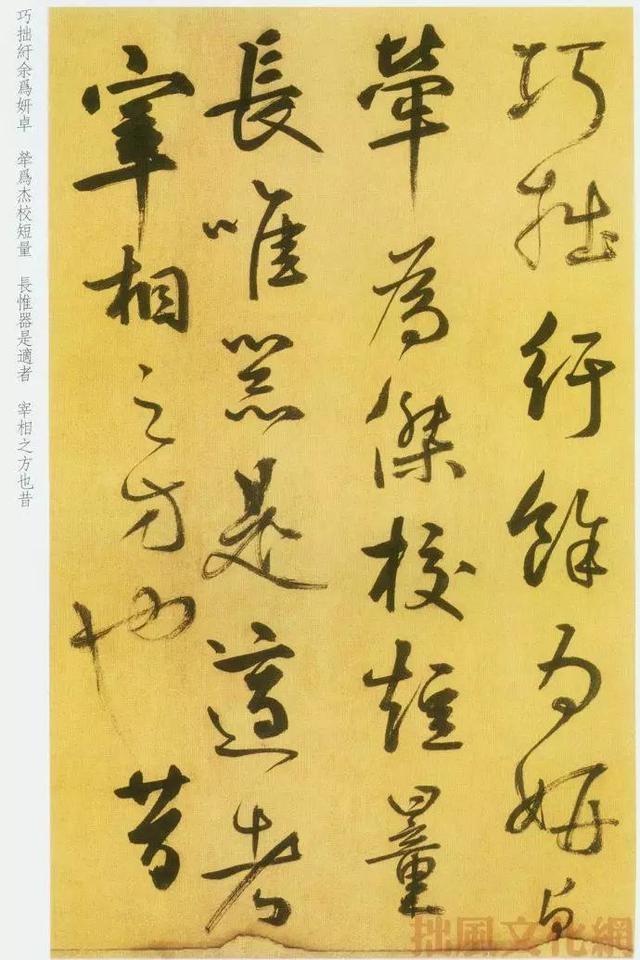 巧拙紆餘為妍卓
犖為傑校短量
長唯器是適者
宰相之方也昔
巧拙紆余爲妍卓　犖爲杰校短量　長惟器是適者　宰相之方也昔
拙風文化網